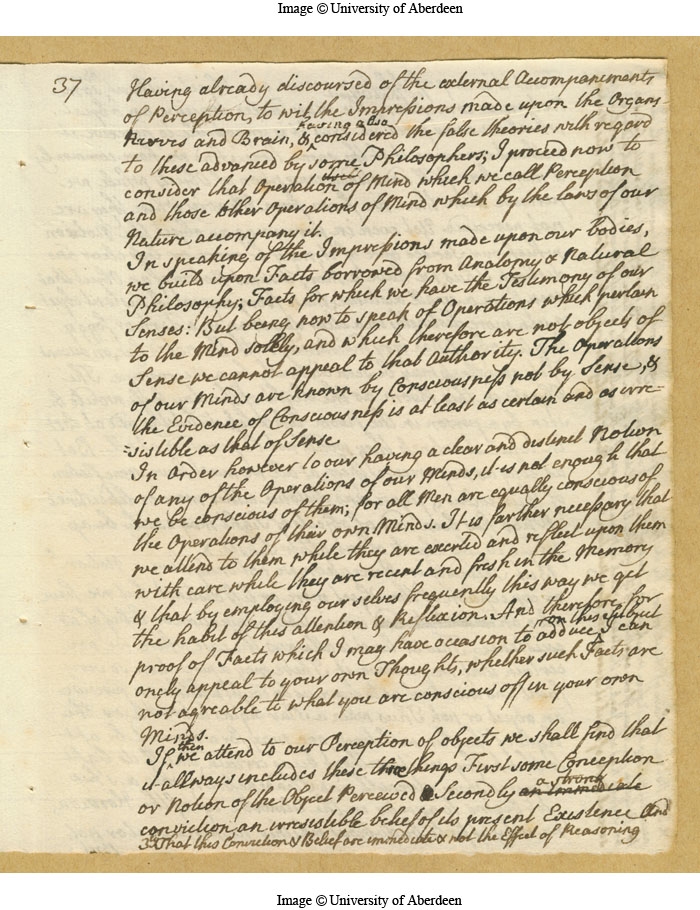 Image © University of Aberdeen
37
Having already discoursed of the external Accompaniments
of Perception, to wit, the Impressions made upon the Organs
Nerves and Brain, & having also considered the false theories with regard
to these advanced by some Philosophers; I proceed now to
consider that Operation itself of Mind which we call Perception
and those other Operations of Mind which by the laws of our
Nature accompany it.
In speaking of the Impressions made upon our bodies,
we build upon Facts borrowed from Anatomy & Natural
Philosophy; Facts for which we have the Testimony of our
Senses: But being now to speak of Operations which pertain
to the Mind solely, and which therefore are not objects of
Sense we cannot appeal to that Authority. The Operations
of our Minds are known by Consciousness not by Sense, &
the Evidence of Consciousness is at least as certain and as irre=
=sistible as that of Sense
In Order however to our having a clear and distinct Notion
of any of the Operations of our Minds, it is not enough that
we be conscious of them; for all Men are equally conscious of
the Operations of their own Minds. It is farther necessary that
we attend to them while they are exerted and reflect upon them
with care while they are recent and fresh in the Memory
& that by employing our selves frequently this way we get
the habit of this attention & Reflexion. And therefore for
proof of Facts which I may have occasion to adduce on this subject I can
only appeal to your own Thoughts, whether such Facts are
not agreable to what you are conscious off in your own
Minds.
If then we attend to our Perception of objects we shall find that
it allways includes these three things First some Conception
or Notion of the Object Perceived Secondly an immediate a strong
conviction, an irresistible belief of its present Existence And
3 That this Conviction & Belief are immediate & not the Effect of Reasoning
Image © University of Aberdeen